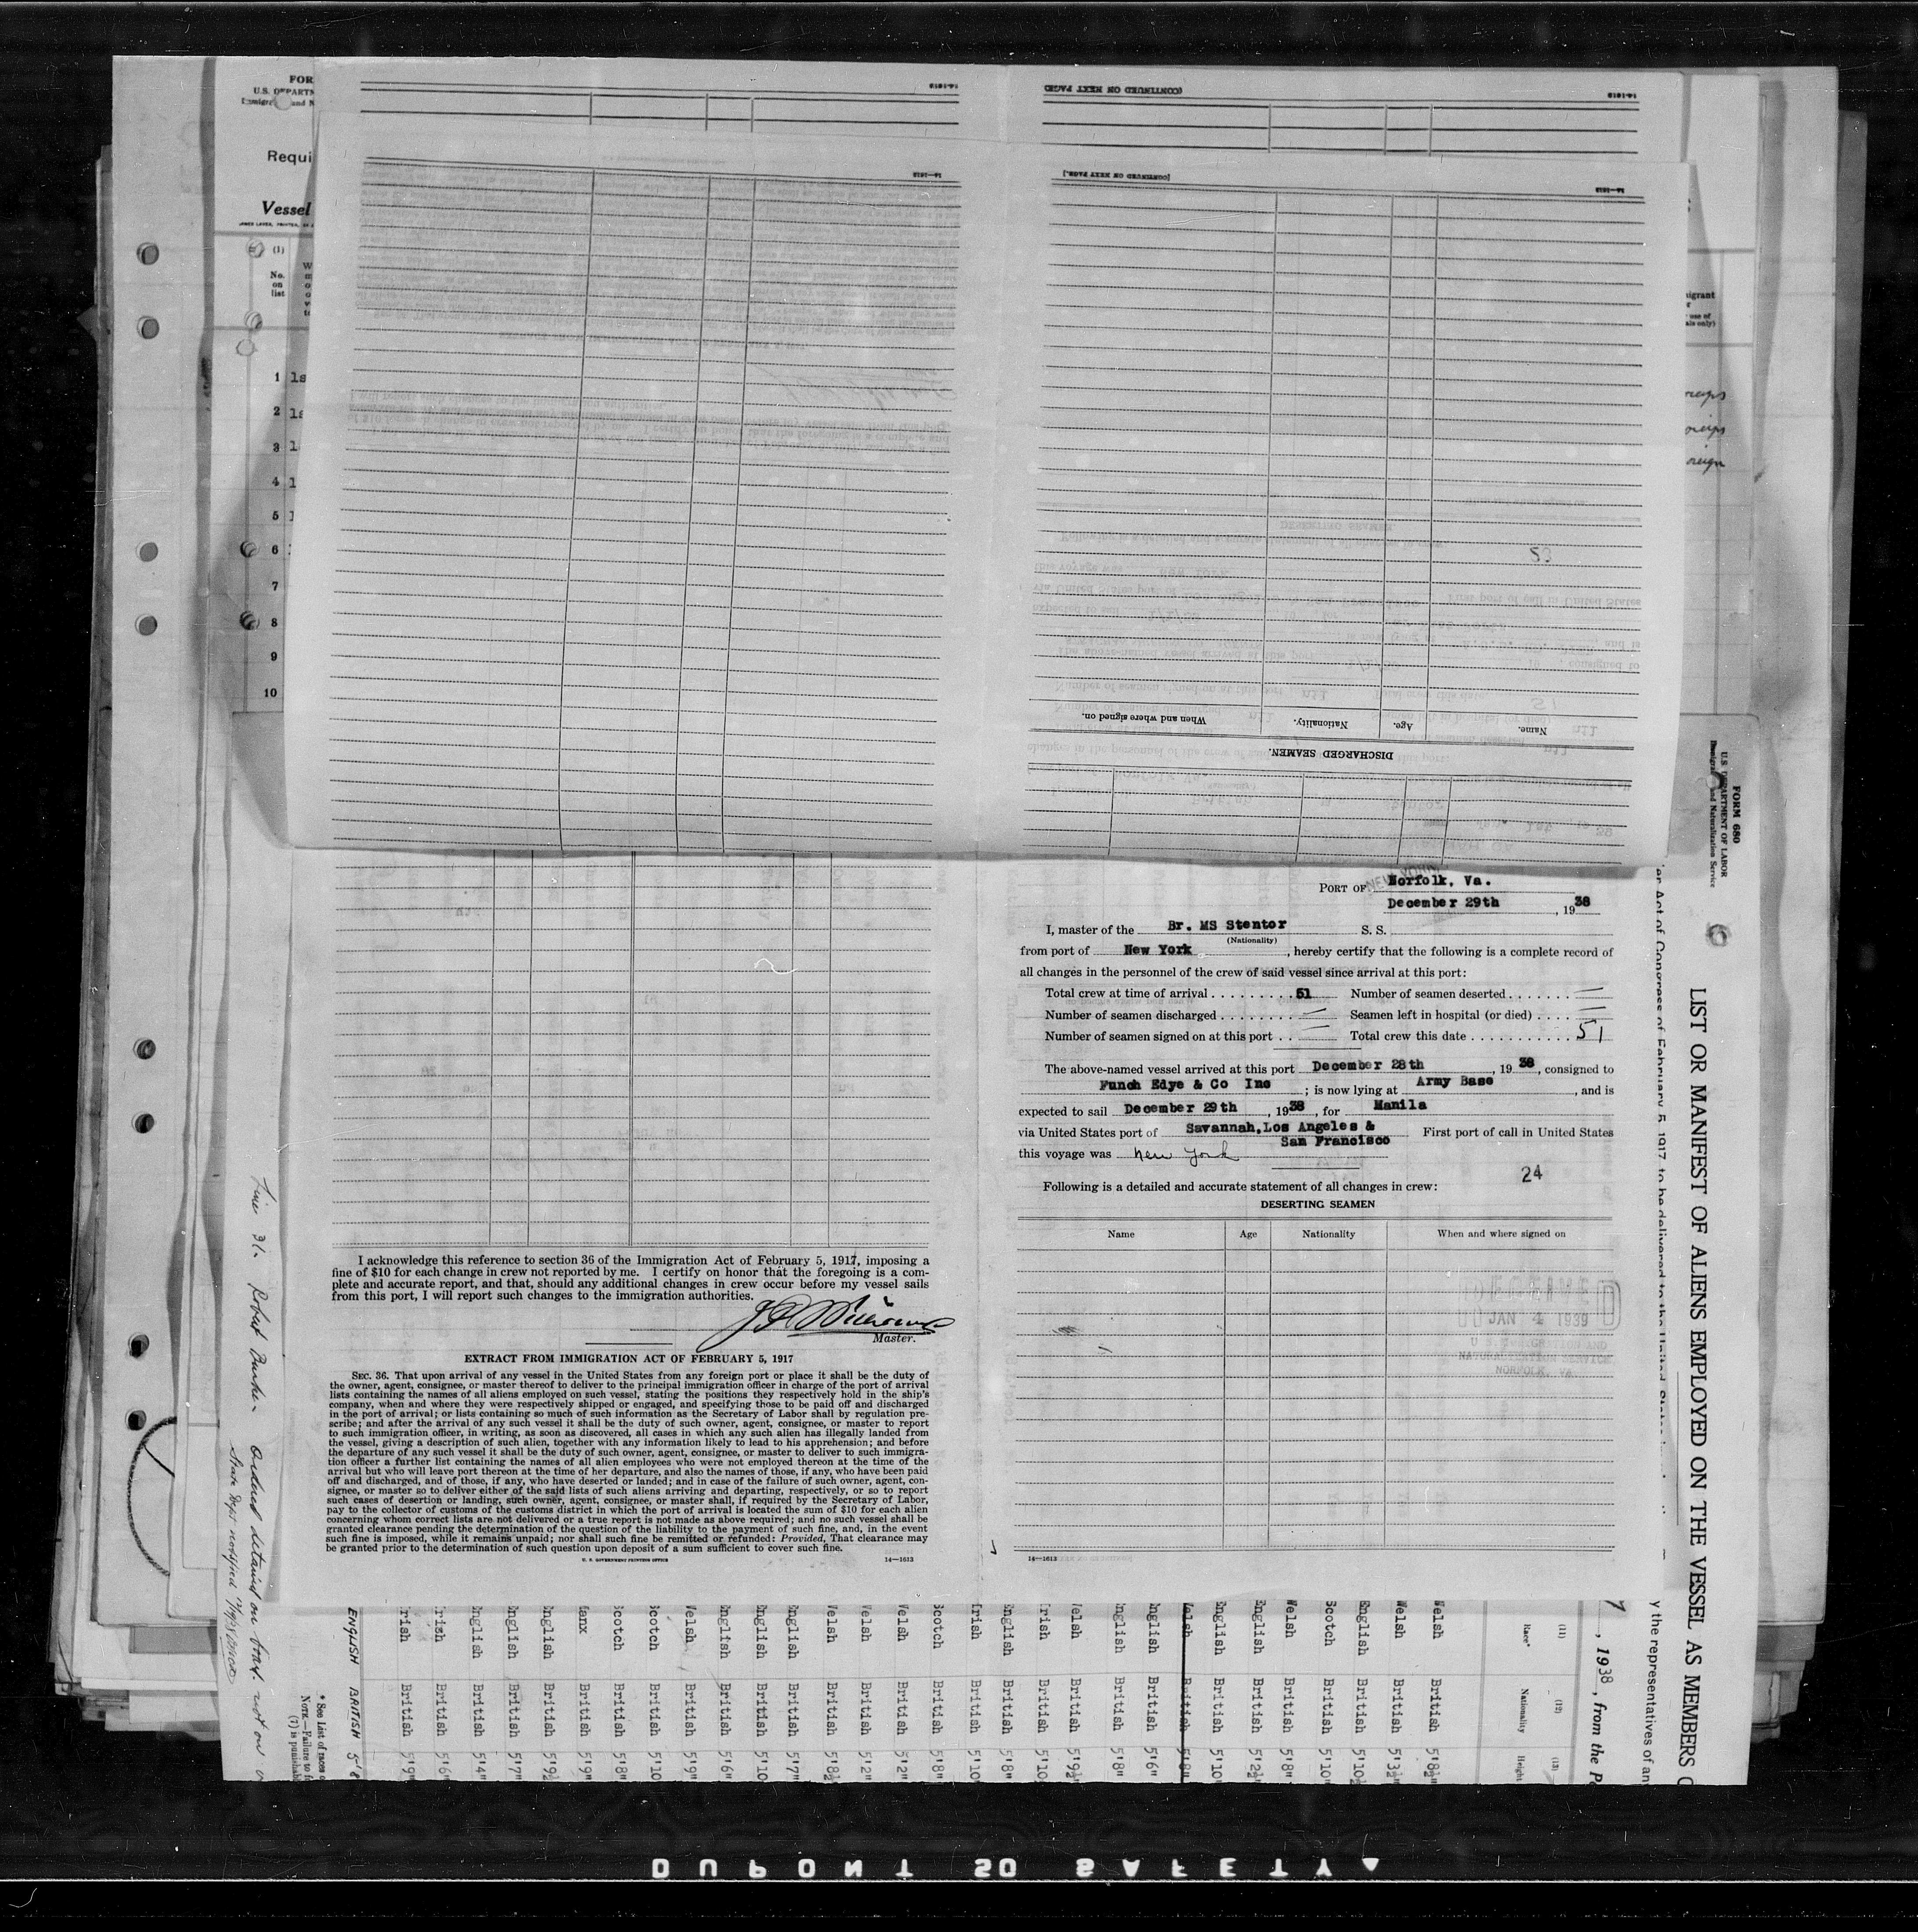 FOR
U.S. DEPARTM
Immigr and N
Requi
Vessel
(1)
No.
on
list
1 1s
2 1s
3 1
4 1
5
6
7
8
9
10
14-1613
(CONTINUED ON NEXT PAGE)
14-1613
14—1613
[CONTINUED ON NEXT PAGE.]
14—1613
53
When and where signed on.
Nationality.
Age.
Name.
DISCHARGED SEAMEN.
PORT OF Norfolk, Va.
December 29th, 1938
I, master of the Br. MS Stentor S. S.
(Nationality)
from port of New York, hereby certify that the following is a complete record of
all changes in the personnel of the crew of said vessel since arrival at this port:
Total crew at time of arrival . . . . . . . . . 51 Number of seamen deserted . . . . . . . —
Number of seamen discharged . . . . . . . . — Seamen left in hospital (or died) . . . . —
Number of seamen signed on at this port . . — Total crew this date . . . . . . . . . . . 51
The above-named vessel arrived at this port December 28th, 1938, consigned to
Funch Edye & Co Inc ; is now lying at Army Base, and is
expected to sail December 29th, 1938, for Manila
via United States port of Savannah, Los Angeles & First port of call in United States
San Francisco
this voyage was New York
24
Following is a detailed and accurate statement of all changes in crew:
DESERTING SEAMEN
Name Age Nationality When and where signed on
RECEIVED
JAN 4 1939
U S IMMIGRATION AND
NATURALIZATION SERVICE
NORFOLK, VA.
14—1613
I acknowledge this reference to section 36 of the Immigration Act of February 5, 1917, imposing a
fine of $10 for each change in crew not reported by me. I certify on honor that the foregoing is a com-
plete and accurate report, and that, should any additional changes in crew occur before my vessel sails
from this port, I will report such changes to the immigration authorities.
Master.
EXTRACT FROM IMMIGRATION ACT OF FEBRUARY 5, 1917
SEC. 36. That upon arrival of any vessel in the United States from any foreign port or place it shall be the duty of
the owner, agent, consignee, or master thereof to deliver to the principal immigration officer in charge of the port of arrival
lists containing the names of all aliens employed on such vessel, stating the positions they respectively hold in the ship's
company, when and where they were respectively shipped or engaged, and specifying those to be paid off and discharged
in the port of arrival; or lists containing so much of such information as the Secretary of Labor shall by regulation pre-
scribe; and after the arrival of any such vessel it shall be the duty of such owner, agent, consignee, or master to report
to such immigration officer, in writing, as soon as discovered, all cases in which any such alien has illegally landed from
the vessel, giving a description of such alien, together with any information likely to lead to his apprehension; and before
the departure of any such vessel it shall be the duty of such owner, agent, consignee, or master to deliver to such immigra-
tion officer a further list containing the names of all alien employees who were not employed thereon at the time of the
arrival but who will leave port thereon at the time of her departure, and also the names of those, if any, who have been paid
off and discharged, and of those, if any, who have deserted or landed; and in case of the failure of such owner, agent, con-
signee, or master so to deliver either of the said lists of such aliens arriving and departing, respectively, or so to report
such cases of desertion or landing, such owner, agent, consignee, or master shall, if required by the Secretary of Labor,
pay to the collector of customs of the customs district in which the port of arrival is located the sum of $10 for each alien
concerning whom correct lists are not delivered or a true report is not made as above required; and no such vessel shall be
granted clearance pending the determination of the question of the liability to the payment of such fine, and, in the event
such fine is imposed, while it remains unpaid; nor shall such fine be remitted or refunded: Provided, That clearance may
be granted prior to the determination of such question upon deposit of a sum sufficient to cover such fine.
U. S. GOVERNMENT PRINTING OFFICE 14—1613
FORM 680
U.S. DEPARTMENT OF LABOR
Immigration and Naturalization Service
6
LIST OR MANIFEST OF ALIENS EMPLOYED ON THE VESSEL AS MEMBERS O
er Act of Congress of February 5, 1917, to be delivered to the United States
y the representatives of an
, 1938, from the P
(11) (12) (13)
Race* Nationality Height
Welsh British 5'8½"
Welsh British 5'3½"
English British 5'10½
Scotch British 5'10
Welsh British 5'8"
English British 5'2½
English British 5'10"
Welsh British 5'8"
English British 5'6"
English British 5'8"
Welsh British 5'9½
Irish British 5'10
English British 5'8"
Irish British 5'10
Scotch British 5'8"
Welsh British 5'2"
Welsh British 5'2"
Welsh British 5'8½
English British 5'7"
English British 5'10
English British 5'6"
Welsh British 5'9"
Scotch British 5'10
Scotch British 5'8"
Manx British 5'9"
English British 5'9½
English British 5'7"
English British 5'4"
Irish British 5'6"
Irish British 5'9"
ENGLISH BRITISH 5'8
* See List of races
NOTE.—Failure to f
(7) is punishabl
Line 31. Robert Ordered detained on boat. not on
State Dept notified
DUPONT SO SAFETY